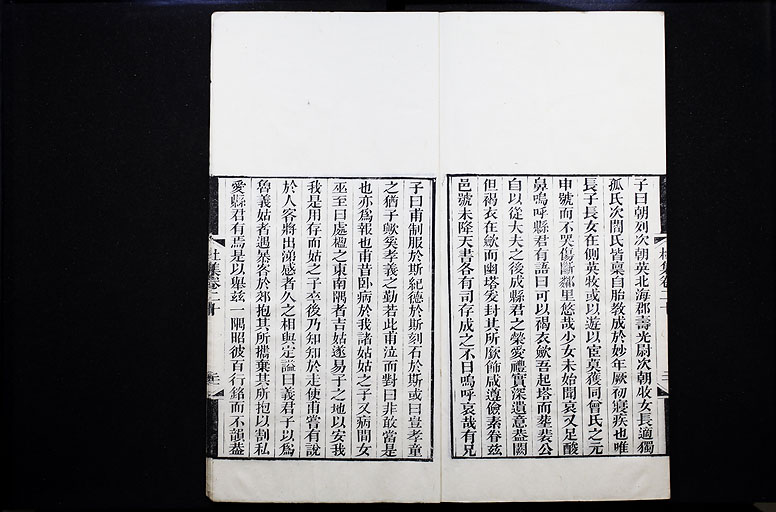 子曰朝列次朝英北海郡壽光尉次朝牧女長適獨
孤氏次閻氏皆稟自胎教成於妙年厥初寢疾也唯
長子長女在側英牧或以遊以宦莫獲同曾氏之元
申號而不哭傷斷鄰里悠哉少女未始聞哀又足酸
鼻嗚呼縣君有語曰可以褐衣斂吾起塔而葬裴公
自以從大夫之後成縣君之榮愛禮實深遺意蓋闕
但褐衣在斂而幽塔爰封其所廞飾咸遵儉素眷茲
邑號未降天書各有司存成之不日嗚呼哀哉有兄
子曰甫制服於斯紀德於斯刻石於斯或曰豈孝童
之猶子歟奚孝義之勤若此甫泣而對曰非敢當是
也亦為報也甫昔卧病於我諸姑姑之子又病間女
巫至曰處楹之東南隅者吉姑遂易子之地以安我
我是用存而姑之子卒後乃知之於走使甫嘗有說
於人客將出涕感者久之相與定謚曰義君子以為
魯義姑者遇暴客於郊抱其所攜棄其所抱以割私
愛縣君有焉是以舉茲一隅昭彼百行銘而不韻蓋
杜集卷二十